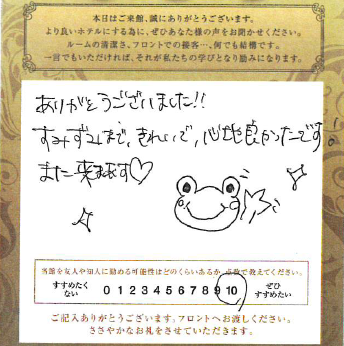 本日はご来館、誠にありがとうございます。
より良いホテルにする為に、ぜひあなた様の声をお聞かせください。
ルームの清潔さ、フロントでの接客…、何でも結構です。
一言でもいただければ、それが私たちの学びとなり励みになります。
ありがとうございました!!
すみずみまで、きれいで、心地良かったです!
また来ます♡
当館を友人や知人に勧める可能性はどのくらいあるか、点数で教えてください。
すすめたくない 0 1 2 3 4 5 6 7 8 9 10 ぜひすすめたい
ご記入ありがとうございます。フロントへお渡しください。
ささやかなお礼をさせていただきます。